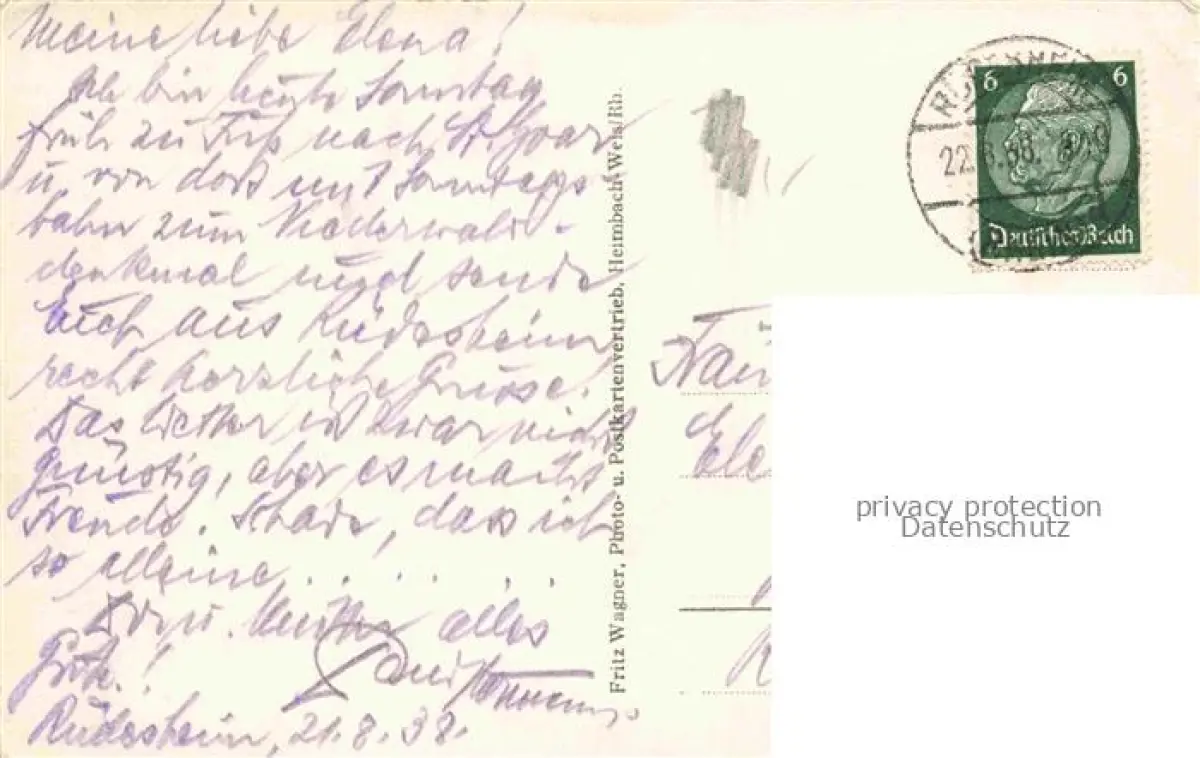 Meine liebe Elena!
Ich bin heute Sonntag
früh zu Fuß nach St. Goar
u. von dort mit Sonntags-
bahn zum Niederwald-
denkmal sende
Euch aus Rüdesheim
recht herzliche Grüsse.
Das Wetter ist zwar nicht
günstig, aber es macht
Freude. Schade, dass ich
so alleine . . . . .
Dir u. alles
Gute!
Rüdesheim, 21.8.38.
Fritz Wagner, Photo- u. Postkartenvertrieb, Heimbach-Weis/Rh.
22.8.38
6 6
Deutsches Reich
Ele
privacy protection
Datenschutz